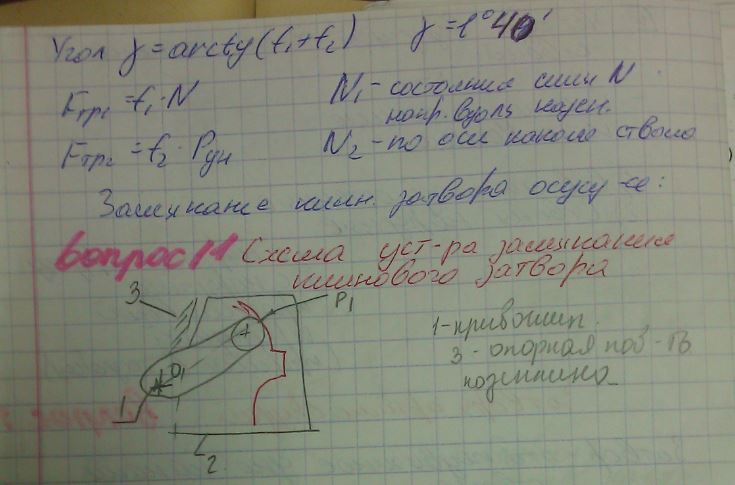 Угол γ = arctg(f₁+f₂) γ=1°40'
Fтр₁ = f₁·N
N₁ - состояния силы N
напр. вдоль казен.
Fтр₂ = f₂·Pдн
N₂ - по оси канала ствола
Замыкание клин. затвора осущ-ся:
Вопрос 11 Схема уст-ра замыкания
клинового затвора
3
P₁
O₁
1
2
1-кривошип.
3-опорная пов-ть
казенника